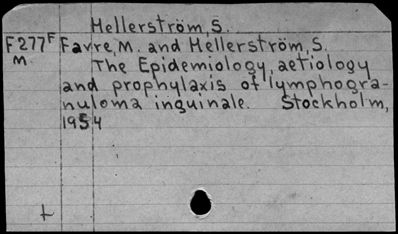 Hellerström, S.
F277F Favre, M. and Hellerström, S.
M The Epidemiology, aetiology
and prophylaxis of lymphogra-
nuloma inguinale. Stockholm,
1954